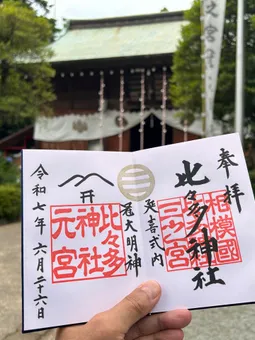 奉拝
相模國
三之宮
比々多神社
延喜式内
冠大明神
比々多
神社
元宮
令和七年六月二十六日